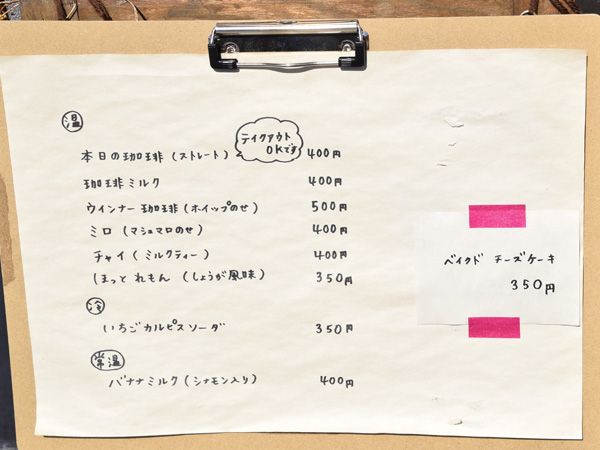 温
テイクアウト
OKです
本日の珈琲(ストレート) 400円
珈琲ミルク 400円
ウインナー珈琲(ホイップのせ) 500円
ミロ(マシュマロのせ) 400円
チャイ(ミルクティー) 400円
ほっとれもん(しょうが風味) 350円
冷
いちごカルピスソーダ 350円
常温
バナナミルク(シナモン入り) 400円
ベイクド チーズケーキ
350円